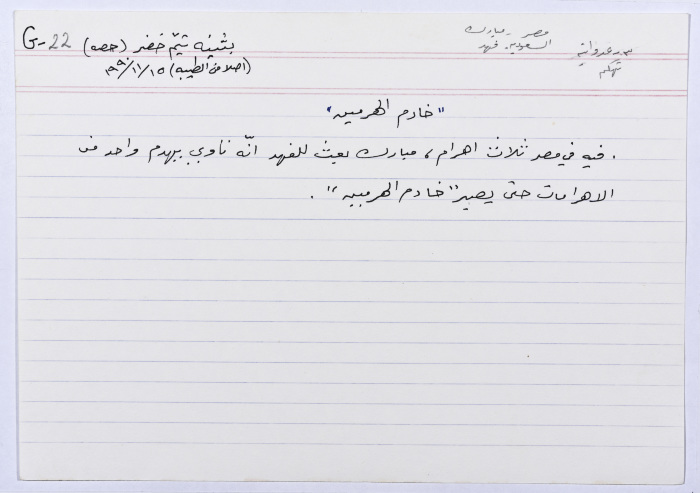 G-22
بثينه تيّم خضر (حصه)
(اصلا من الطيبه) ١٩٩٠/١١/١٥
مصر - مبارك
السعودية - فهد
عدوانية
تهكم
"خادم الهرمين"
. فيه في مصر ثلاث اهرام، مبارك بعث للفهد انّه ناوي بيهدم واحد من
الاهرامات حتى يصير "خادم الهرمين".